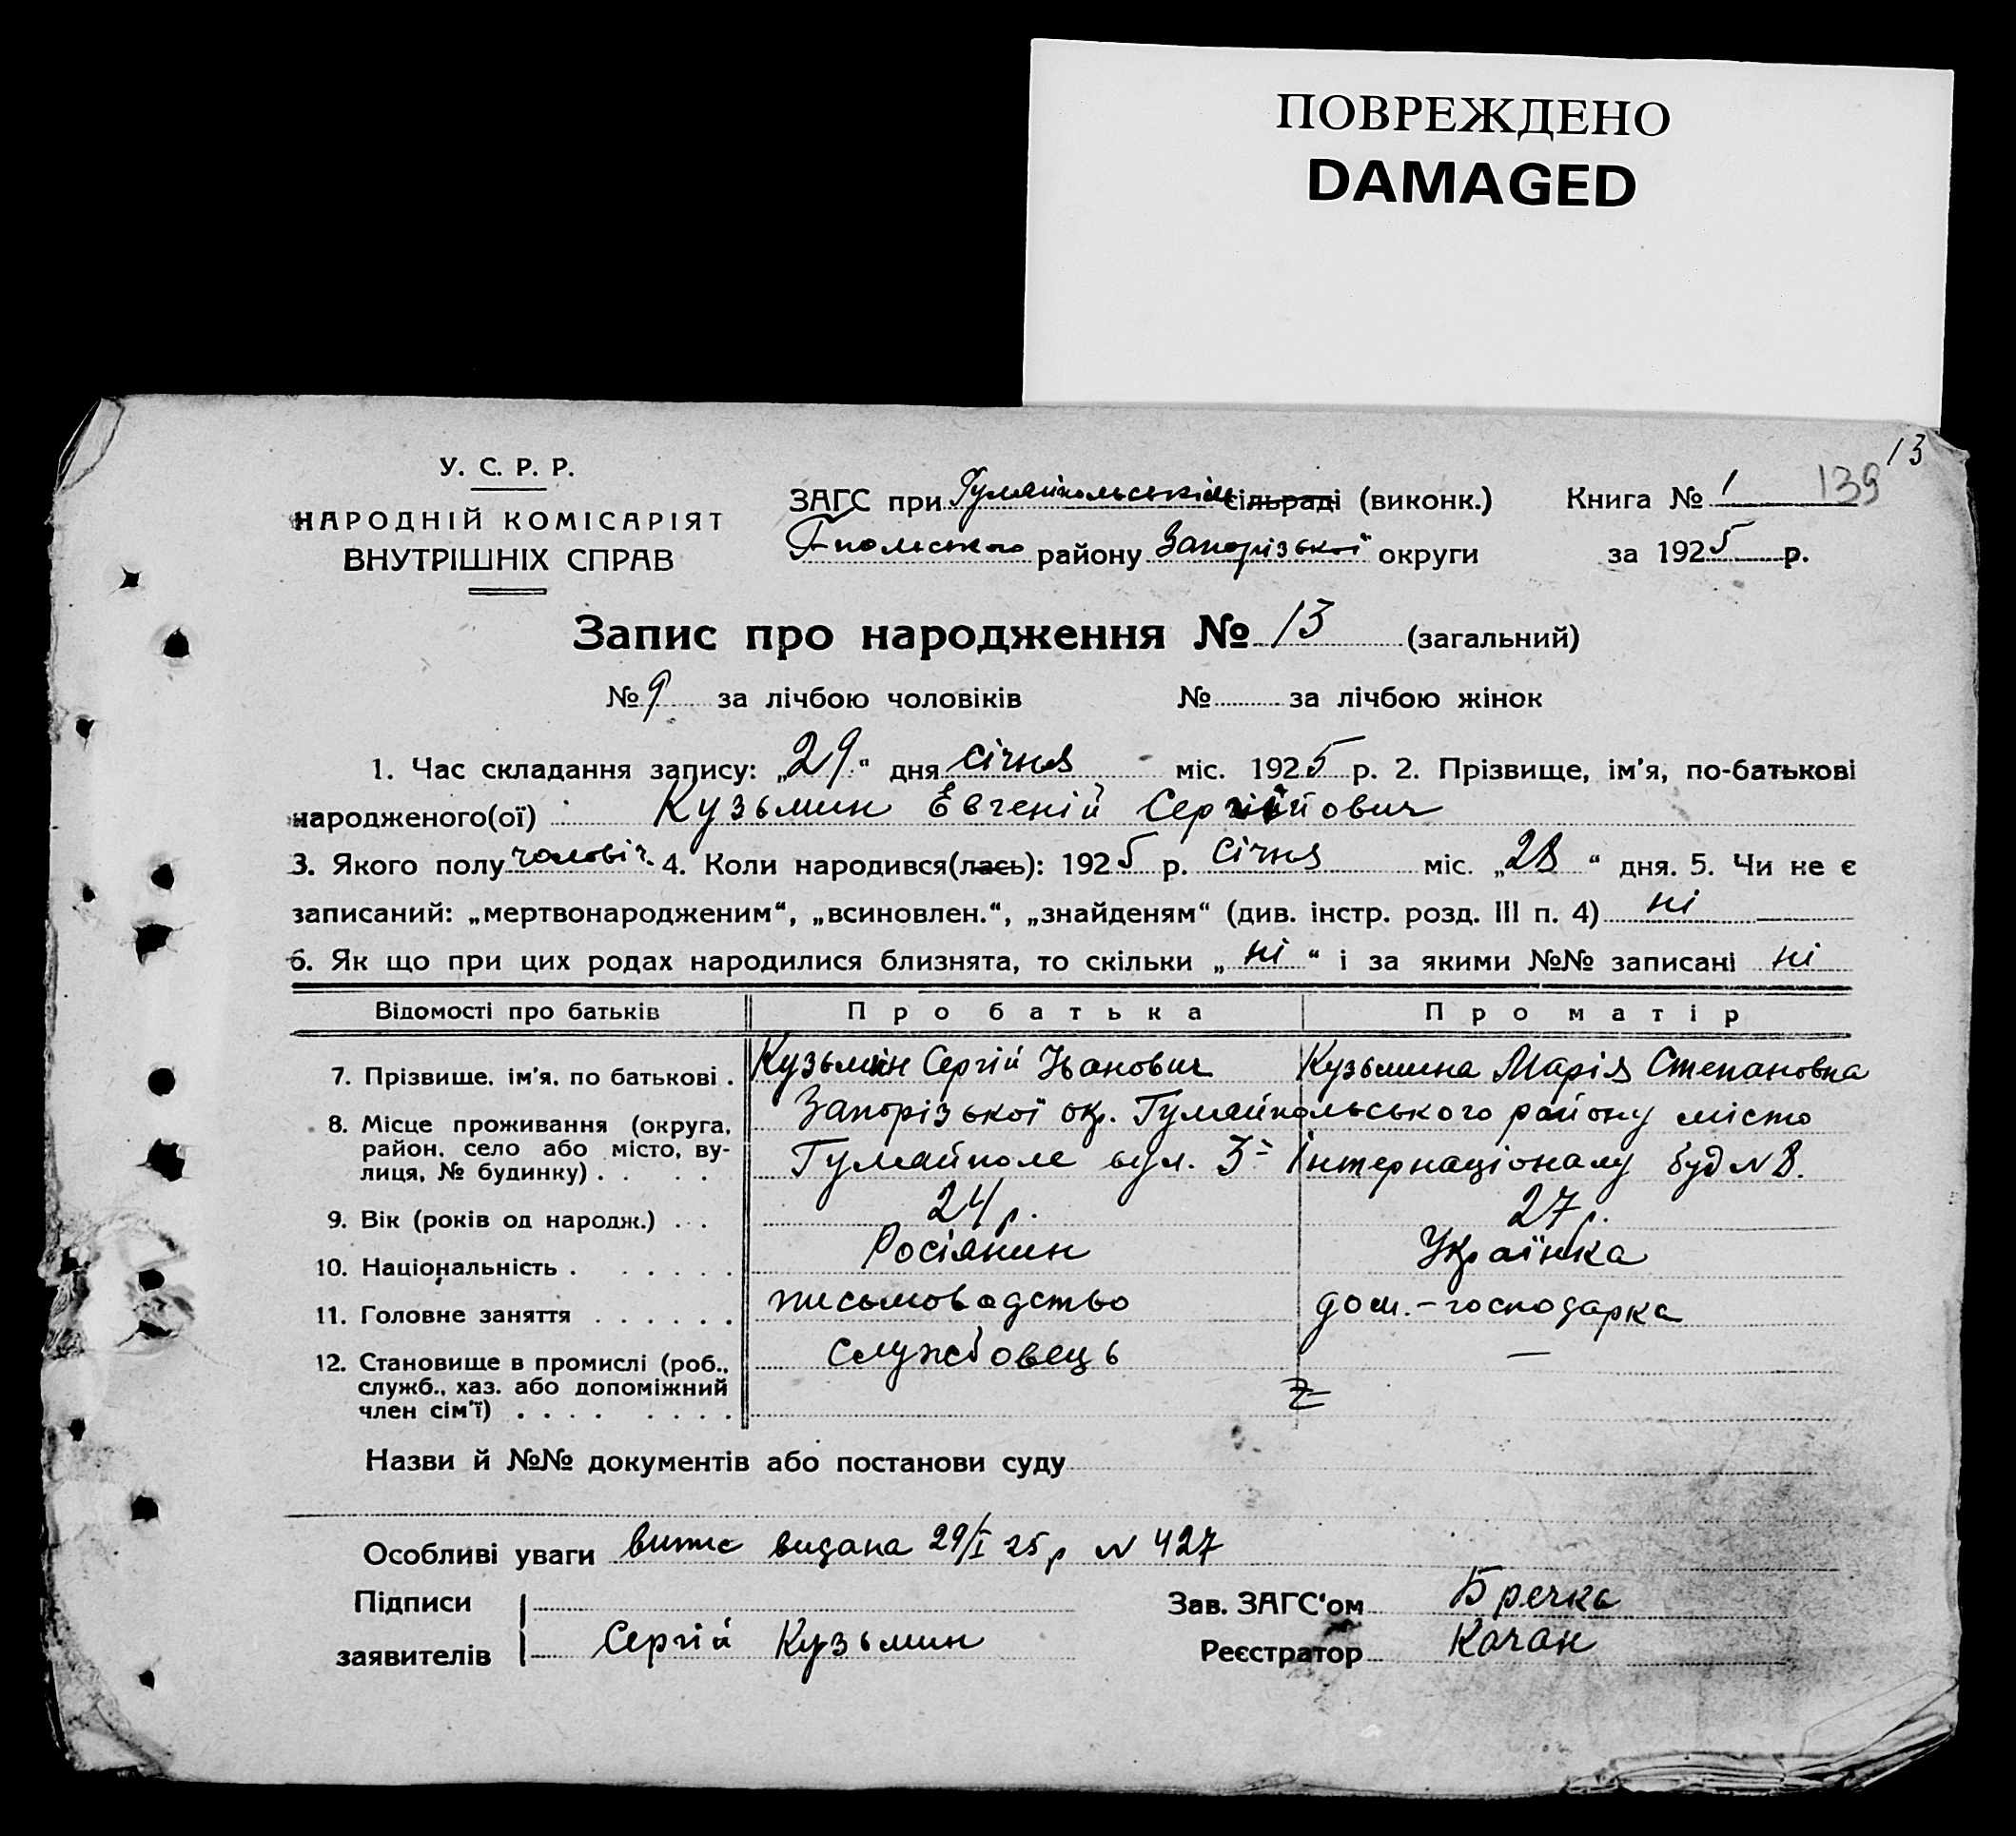 ПОВРЕЖДЕНО
DAMAGED
13
139
У. С. Р. Р.
НАРОДНІЙ КОМІСАРІЯТ
ВНУТРІШНІХ СПРАВ
ЗАГС при Гуляйпольськім сільраді (виконк.) Книга № 1
Гпольського району Запорізької округи за 1925 р.
Запис про народження № 13 (загальний)
№ 9 за лічбою чоловіків № за лічбою жінок
1. Час складання запису: „29“ дня січня міс. 1925 р. 2. Прізвище, ім'я, по-батькові
народженого(ої) Кузьмин Евгеній Сергійович
3. Якого полу чоловіч. 4. Коли народився(лась): 1925 р. січня міс. „28“ дня. 5. Чи не є
записаний: „мертвонародженим“, „всиновлен.“, „знайденям“ (див. інстр. розд. III п. 4) ні
6. Як що при цих родах народилися близнята, то скільки „ні“ і за якими №№ записані ні
Відомості про батьків Про батька Про матір
7. Прізвище, ім'я, по батькові . Кузьмин Сергій Іванович Кузьмина Марія Степановна
8. Місце проживання (округа, район, село або місто, вулиця, № будинку) . . . . Запорізької окр. Гуляйпольського району місто
Гуляйполе вул. 3-ј Інтернаціоналу буд № 8.
9. Вік (років од народж.) . . . 24 р. 27 р.
10. Національність . . . . . . Росіянин Українка
11. Головне заняття . . . . . . письмоводство дом.-господарка
12. Становище в промислі (роб., служб., хаз. або допоміжний член сім'ї) . . . . . . . . службовець —
Назви й №№ документів або постанови суду
Особливі уваги витяг видана 29/I 25 р № 427
Підписи Зав. ЗАГС'ом Бречка
заявителів Сергій Кузьмин Реєстратор Качан